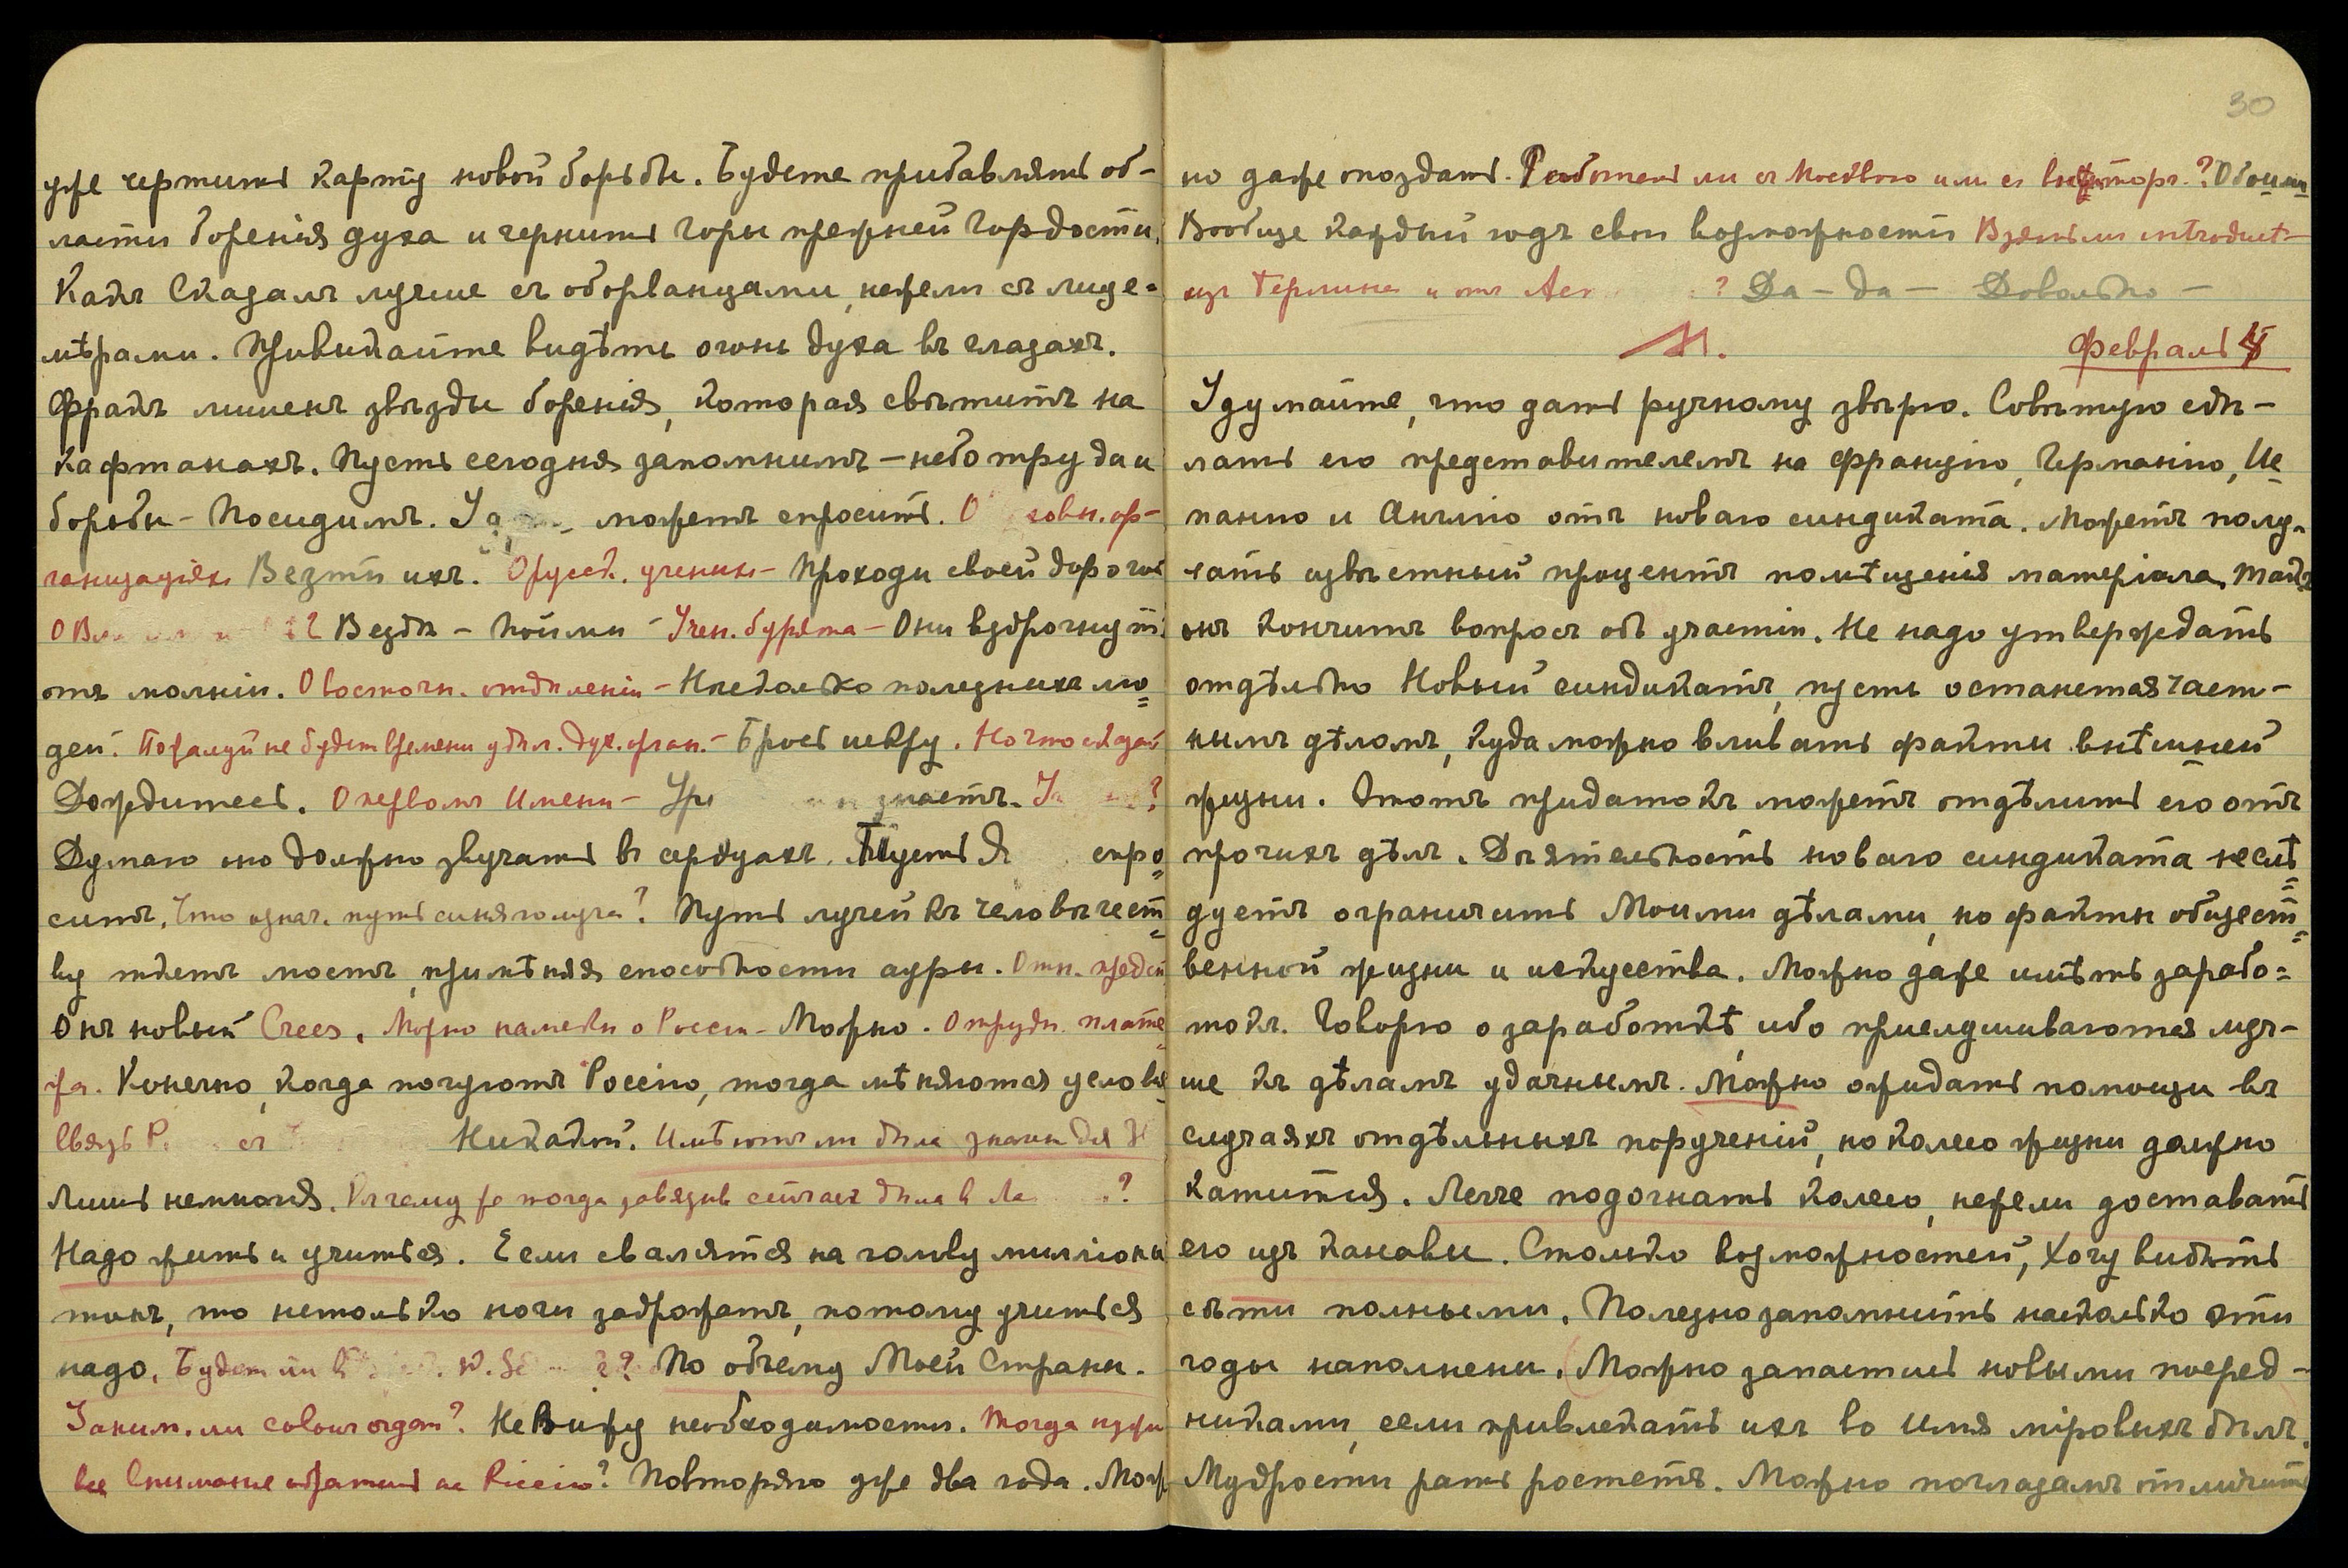 уже чертить карту новой борьбы. Будете прибавлять об-
ласти боренія духа и чернить горы прежней гордости.
Какъ Сказалъ лучше съ оборванцами, нежели съ лице-
мѣрами. Привыкайте видѣть огонь духа въ глазахъ.
Фракъ лишенъ звѣзды боренія, которая свѣтитъ на
кафтанахъ. Пусть сегодня запомнимъ – небо труда и
борьбы – Посидимъ. можетъ спросить. О ховн. ор-
ганизаціяхъ Везти ихъ. О русск. ученик – Проходи своей дорогой
О Вездѣ – Пойми – Учен. бурята – Они вздрогнутъ
отъ молніи. О восточн. отдѣленіи – Нѣсколько полезныхъ лю-
дей. Пожалуй не будетъ времени удѣл. дух. орган. – Брось искру. На что ждать
Дождитесь. О первомъ Имени – знаетъ. ?
Думаю оно должно звучать въ сердцахъ. Пусть Я спро-
ситъ. Что означ. путь синяго луча? Путь лучей къ человѣчест-
ву ткетъ мостъ, примѣняя способности ауры. Отн.
Онъ новый Crees. Можно намеки о Россіи – Можно. О трудн. плате-
жа. Конечно, когда почуютъ Россію, тогда мѣняются услов
Связь Р. съ Никакой. Имѣютъ ли дѣла значен для
Лишь немногія. Къ чему же тогда завязыв сейчасъ дѣла в Ла ?
Надо жить и учиться. Если свалятся на голову милліоны
тоннъ, то нетолько ноги задрожатъ, потому учиться
надо. Будетъ ли ? По объему Моей Страны.
Заним. ли colour organ? Не Вижу необходимости. Тогда нужн
все Вниманіе обратить на Россію? Повторяю уже два года. Мож
30
но даже опоздать. Работать ли съ Москвою или съ Внѣшторг.? Обоими
Вообще каждый годъ свои возможности Взять ли introduct-
изъ Берлина и отъ ? Да – да – Довольно –
М. Февраль
Удумайте, что дать ручному звѣрю. Совѣтую сдѣ-
лать его представителемъ на Францію, Германію, Ис-
панію и Англію отъ новаго синдиката. Можетъ полу-
чать извѣстный процентъ помѣщенія матеріала, такъ
онъ кончитъ вопросъ объ участіи. Не надо утверждать
отдѣльно Новый синдикатъ, пусть останется част-
нымъ дѣломъ, куда можно вливать факты внѣшней
жизни. Этотъ придатокъ можетъ отдѣлить его отъ
прочихъ дѣлъ. Дѣятельность новаго синдиката не слѣ-
дуетъ ограничить Моими дѣлами, но факты общест-
венной жизни и искусства. Можно даже имѣть зарабо-
токъ. Говорю о заработкѣ, ибо прислушиваются луч-
ше къ дѣламъ удачнымъ. Можно ожидать помощи въ
случаяхъ отдѣльныхъ порученій, но колесо жизни должно
катиться. Легче подогнать колесо, нежели доставать
его изъ канавы. Столько возможностей, Хочу видѣть
сѣти полными. Полезно запомнить насколько эти
годы наполнены. Можно запастись новыми посред-
никами, если привлекать ихъ во Имя міровыхъ дѣлъ.
Мудрости рать ростетъ. Можно по глазамъ отличить